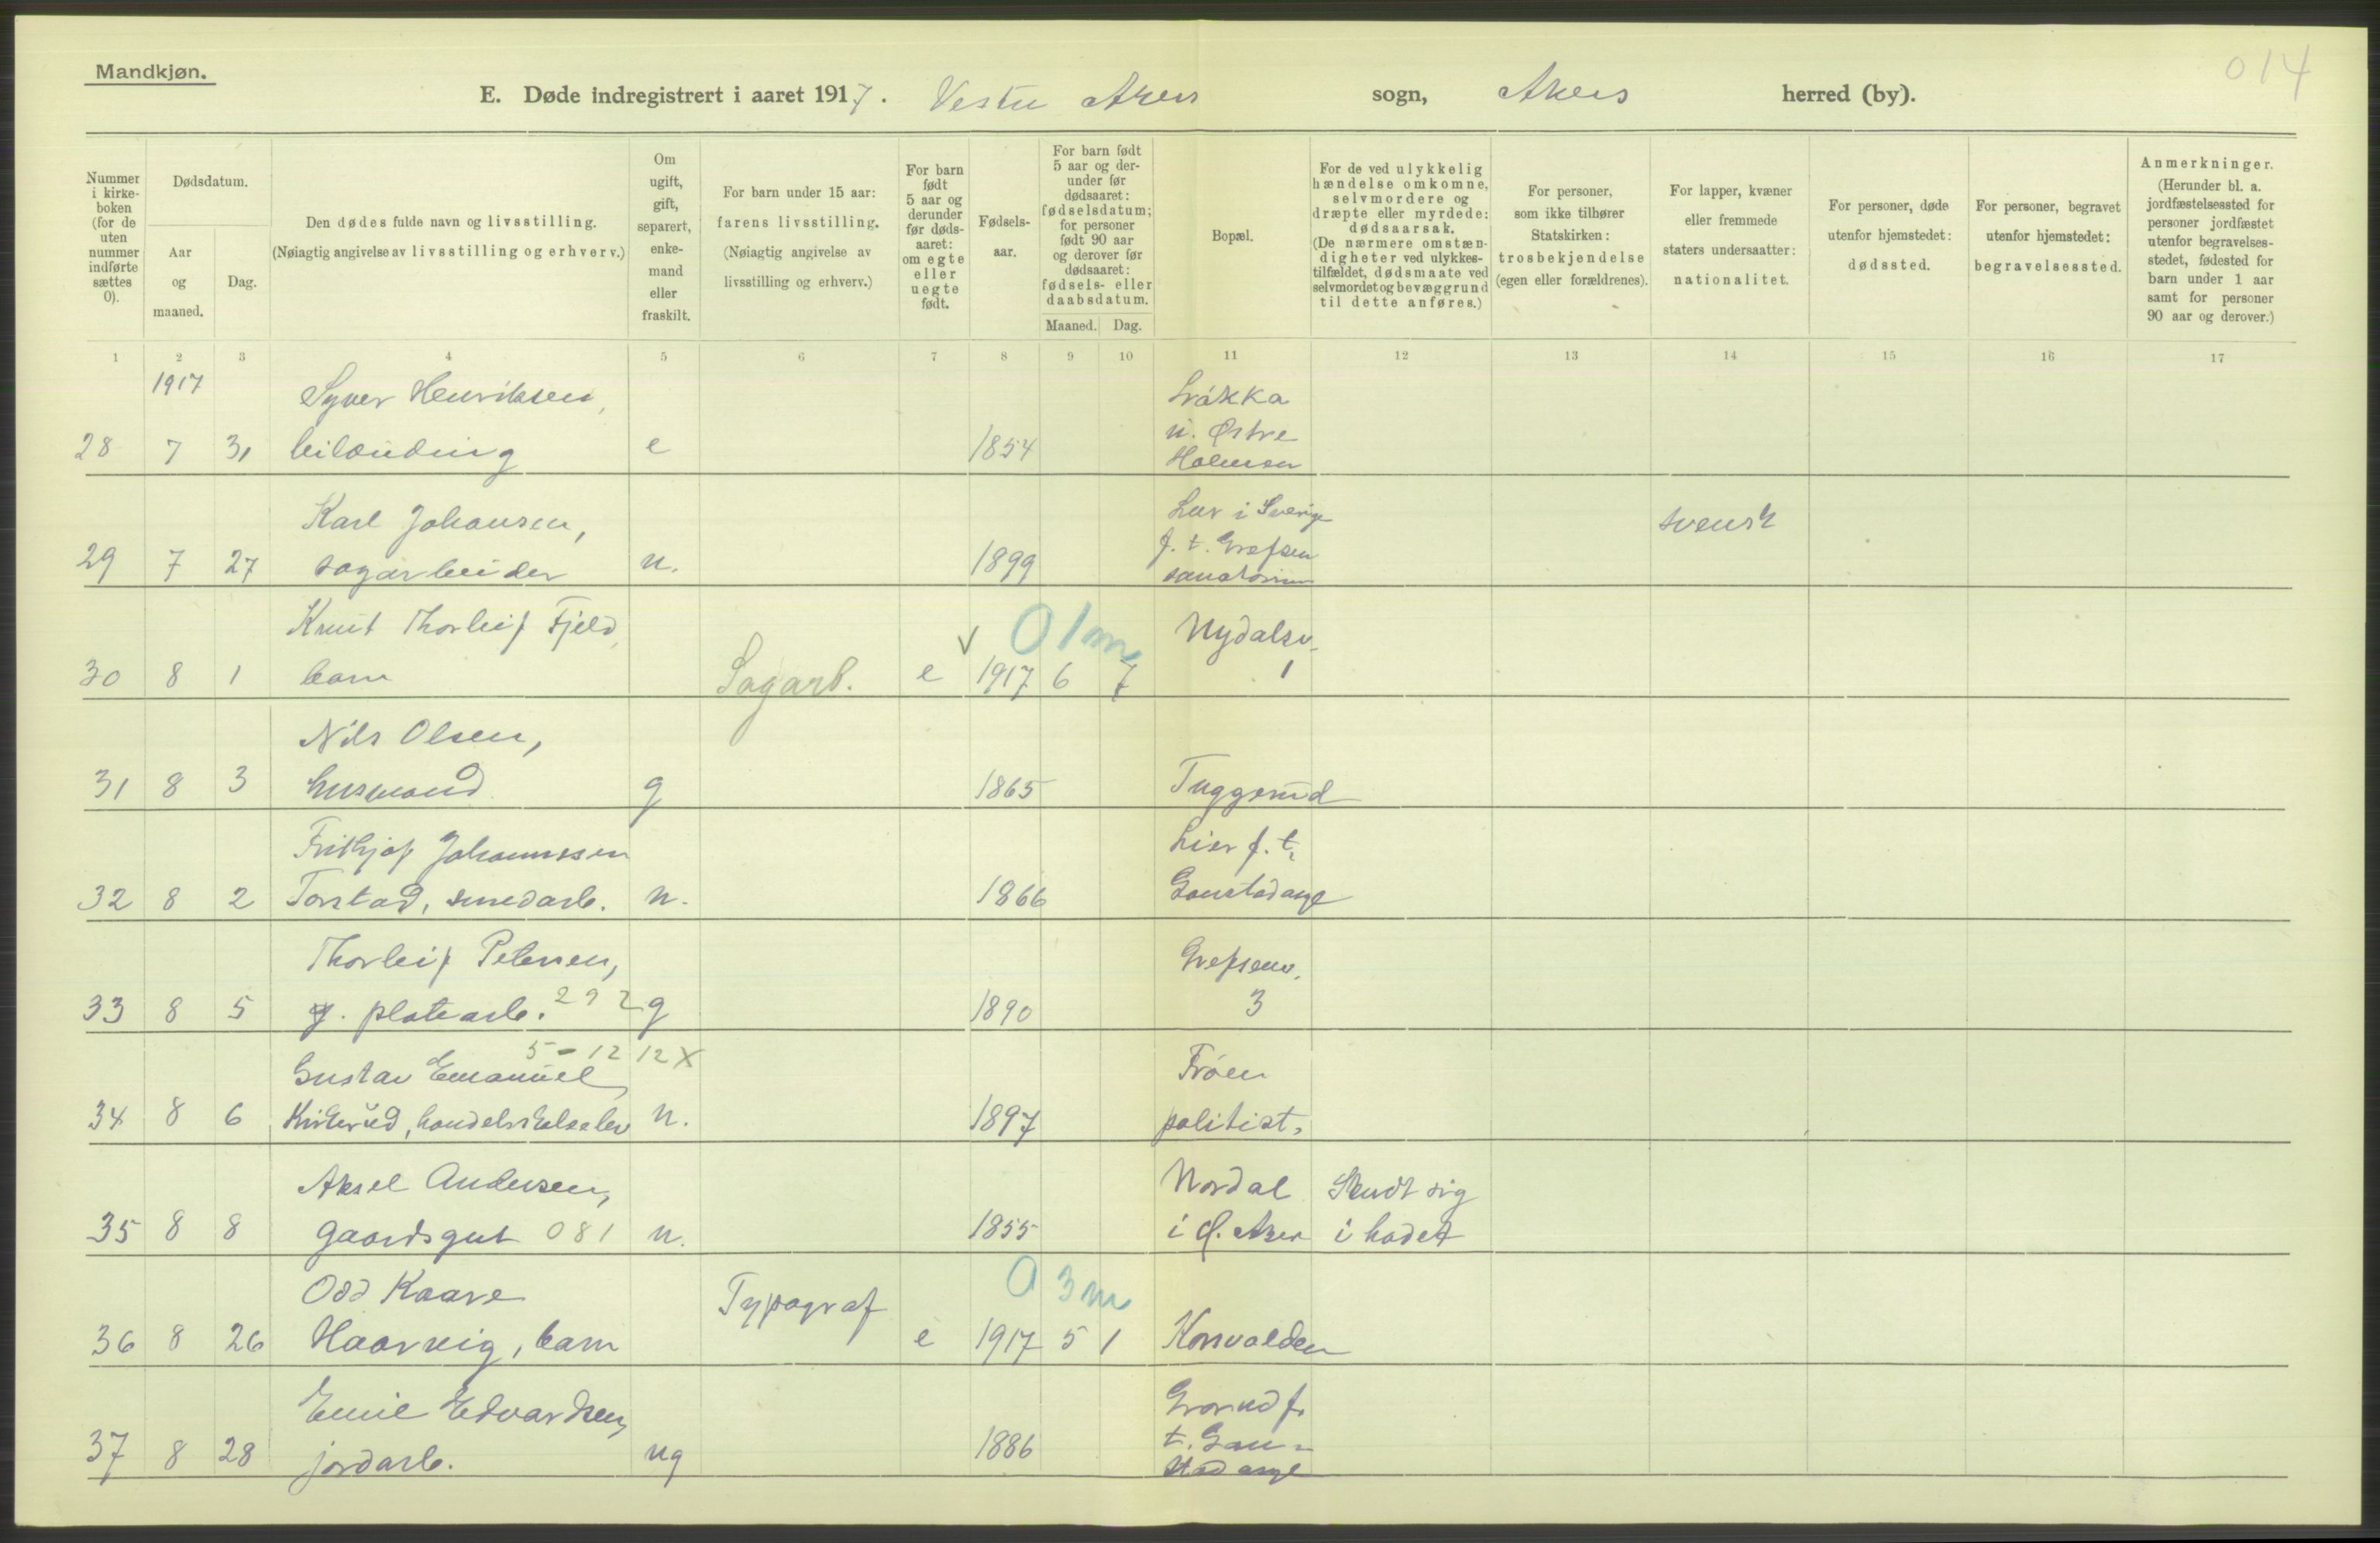 014
Mandkjøn.
E. Døde indregistrert i aaret 1917. Vestre Akers sogn, Akers herred (by).
Nummer i kirkeboken (for de uten nummer indførte sættes 0).
Dødsdatum.
Aar og maaned.
Dag.
Den dødes fulde navn og livsstilling.
(Nøiagtig angivelse av livsstilling og erhverv.)
Om ugift, gift, separert, enkemand eller fraskilt.
For barn under 15 aar: farens livsstilling.
(Nøiagtig angivelse av livsstilling og erhverv.)
For barn født 5 aar og derunder før dødsaaret: om egte eller uegte født.
Fødselsaar.
For barn født 5 aar og derunder før dødsaaret: fødselsdatum; for personer født 90 aar og derover før dødsaaret: fødsels- eller daabsdatum.
Maaned. Dag.
Bopæl.
For de ved ulykkelig hændelse omkomne, selvmordere og dræpte eller myrdede: dødsaarsak.
(De nærmere omstændigheter ved ulykkestilfældet, dødsmaate ved selvmordet og bevæggrund til dette anføres.)
For personer, som ikke tilhører Statskirken: trosbekjendelse (egen eller forældrenes).
For lapper, kvæner eller fremmede staters undersaatter: nationalitet.
For personer, døde utenfor hjemstedet: dødssted.
For personer, begravet utenfor hjemstedet: begravelsessted.
Anmerkninger.
(Herunder bl. a. jordfæstelsessted for personer jordfæstet utenfor begravelsesstedet, fødested for barn under 1 aar samt for personer 90 aar og derover.)
1 2 3 4 5 6 7 8 9 10 11 12 13 14 15 16 17
1917
Syver Henriksen, Lråkka
u. Østre
28 7 31 e 1854 Holmen
Karl Johansen, Lur i Sverige
f. t. Grefsen svensk
29 7 27 sagarbeider u. 1899 sanatorium
Knut Thorleif Fjeld, 01m Nydalsv.
30 8 1 barn Sagarb. e v 1917 6 7 1
Nils Olsen,
31 8 3 husmand g 1865 Tuggerud
Frithjof Johannessen Lier f. t.
32 8 2 Torstad, smedarb. u. 1866 Gaustad asyl
Thorleif Petersen, Grefsenv.
33 8 5 g. platearb. 292 g 1890 3
5-12 12 X
Gustav Emanuel Frøen
34 8 6 Kirkerud, handelsskoleelev u. 1897 politist.
Aksel Andersen, Nordal Skudt sig
35 8 8 gaardsgut 081 u. 1855 i Ø. Aker i hodet
Odd Kaare Typograf 03m
36 8 26 Haarvig, barn e 1917 5 1 Korsvolden
Emil Edvardsen, Grorud f.
t. Gau-
37 8 28 jordarb. ug 1886 stad asyl